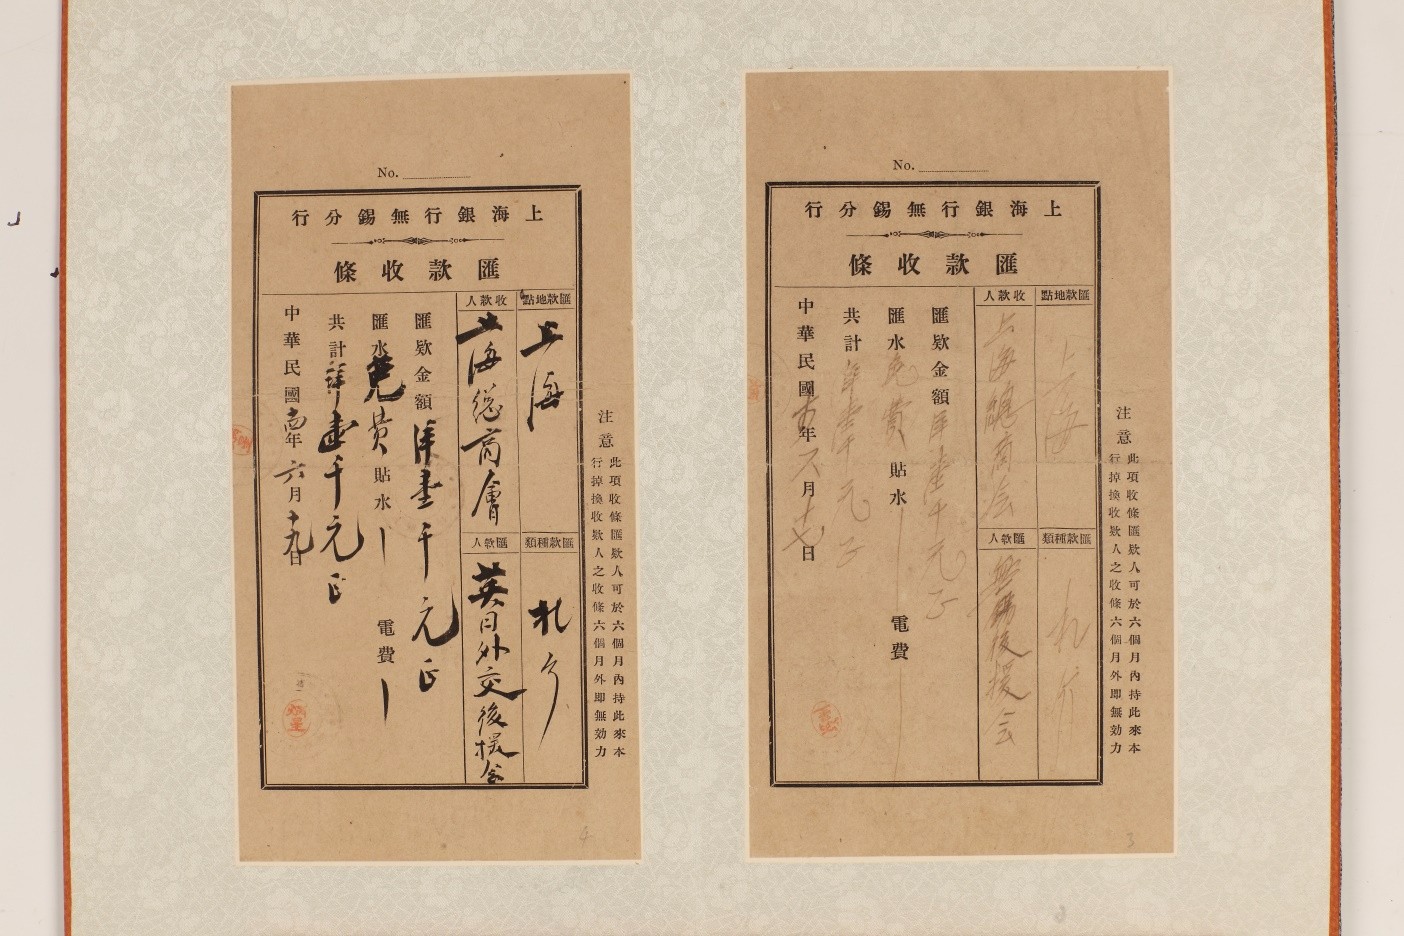 No.
上海銀行無錫分行
匯款收條
匯款地點
上海
收款人
上海總商会
匯款種類
匯款人
無錫後援会
匯欵金額 洋壹千元正
匯水 免費 貼水 電費
共計 洋壹千元正
中華民國 年六月 日
注意
此項收條匯欵人可於六個月內持此來本
行掉換收欵人之收條六個月外即無効力
3
No.
上海銀行無錫分行
匯款收條
匯款地點
上海
收款人
上海總商會
匯款種類
匯款人
英日外交後援会
匯欵金額 洋壹千元正
匯水 免費 貼水 電費
共計 洋壹千元正
中華民國 年六月十九日
注意
此項收條匯欵人可於六個月內持此來本
行掉換收欵人之收條六個月外即無効力
4